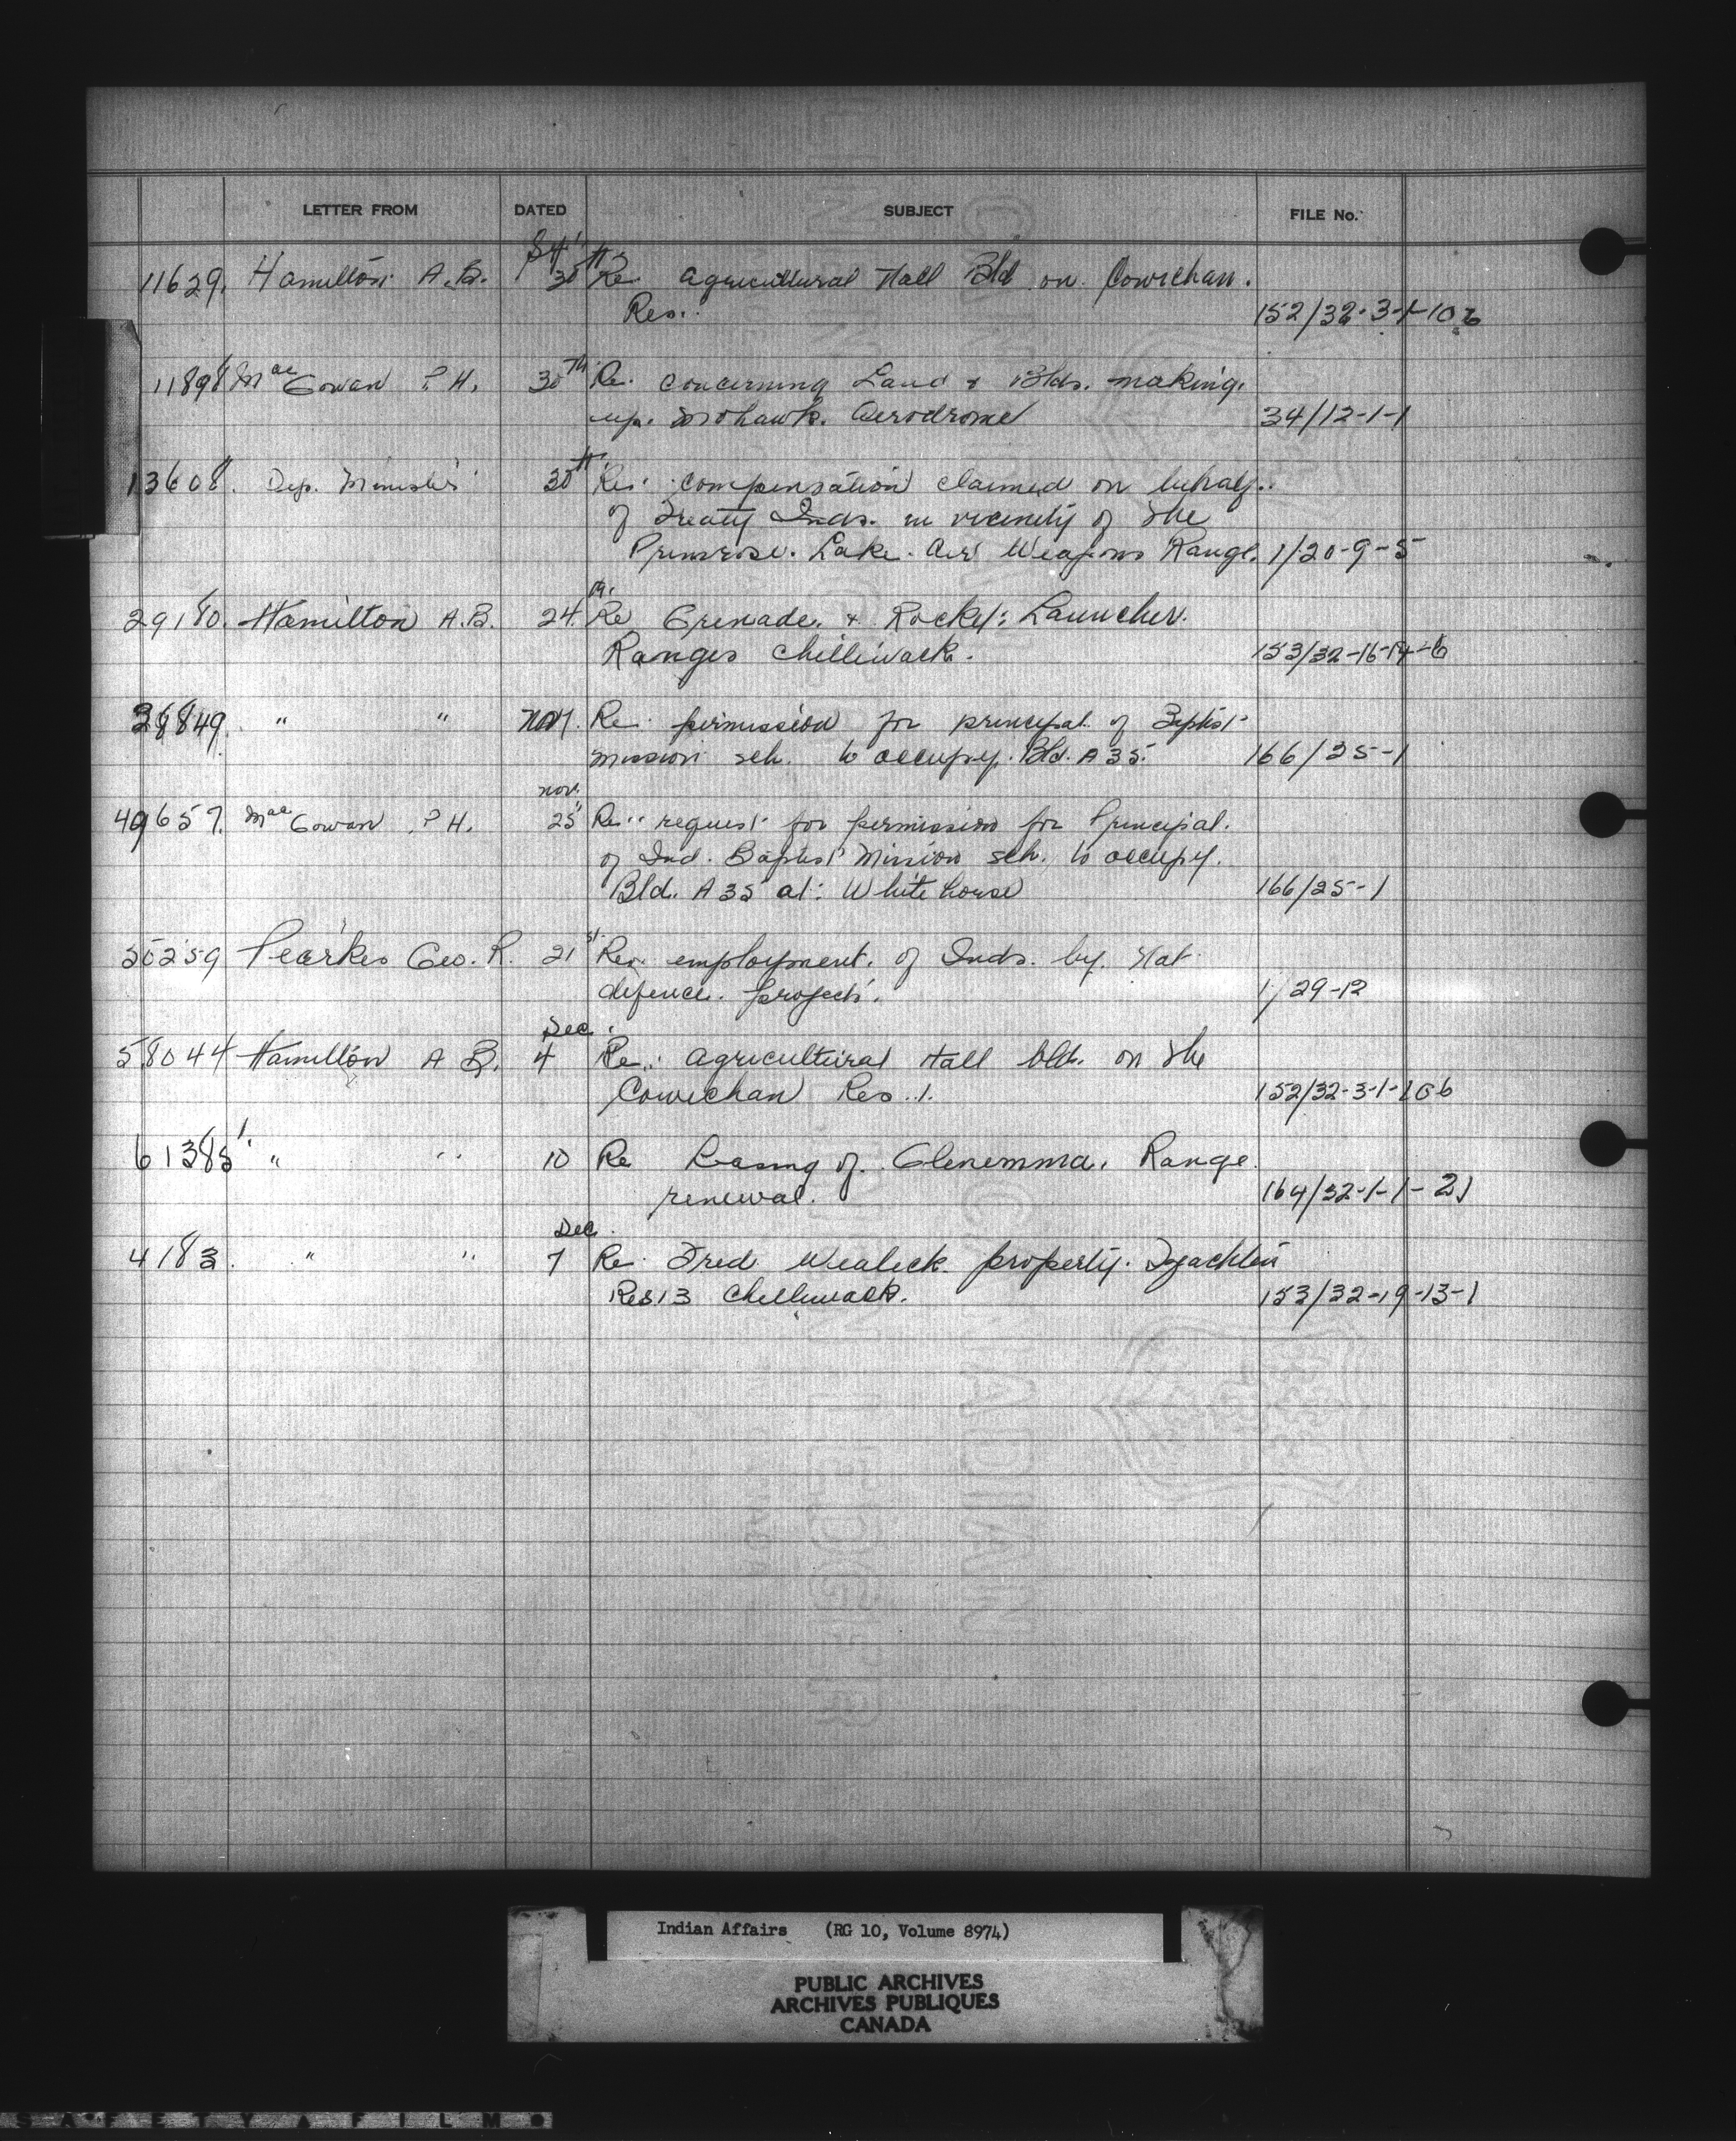 LETTER FROM DATED SUBJECT FILE No.
11629. Hamilton A.B. 30th Re Agricultural Hall Bld on Cowichan.
Res. 152/32-3-1-106
11898 MacGowan P.H. 30th Re. concerning Land & Blds. making
up. Mohawk. Aerodrome 34/12-1-1
13608. Dep. Minister 30th Re. compensation claimed on behalf
of Treaty Inds. in vicinity of the
Primrose. Lake. Air Weapons Range. 1/20-9-5
29180. Hamilton A.B. 24. Re Grenade. & Rocket Launcher.
Ranges Chilliwack. 153/32-16-14-6
38849. " " Nov. Re permission for principal of Baptist
mission sch. to occupy. Bld. A 35. 166/25-1
Nov.
49657. MacGowan P.H. 25 Re request for permission for Principal.
of Ind. Baptist Mission sch. to occupy.
Bld. A 35 at: Whitehorse 166/25-1
50259 Pearkes Geo. R. 21st Re. employment. of Inds. by. Nat
defence. projects. 1/29-12
Dec.
58044 Hamilton A B. 4 Re: Agricultural Hall bld. on the
Cowichan Res. 1. 152/32-3-1-106
61385 " " 10 Re Leasing of. Glenemma. Range
renewal. 164/32-1-1-21
Dec.
4183. " " 7 Re Fred Wealick property. Tzeachten
Res 13 Chilliwack. 153/32-19-13-1
Indian Affairs (RG 10, Volume 8974)
PUBLIC ARCHIVES
ARCHIVES PUBLIQUES
CANADA
SAFETY FILM